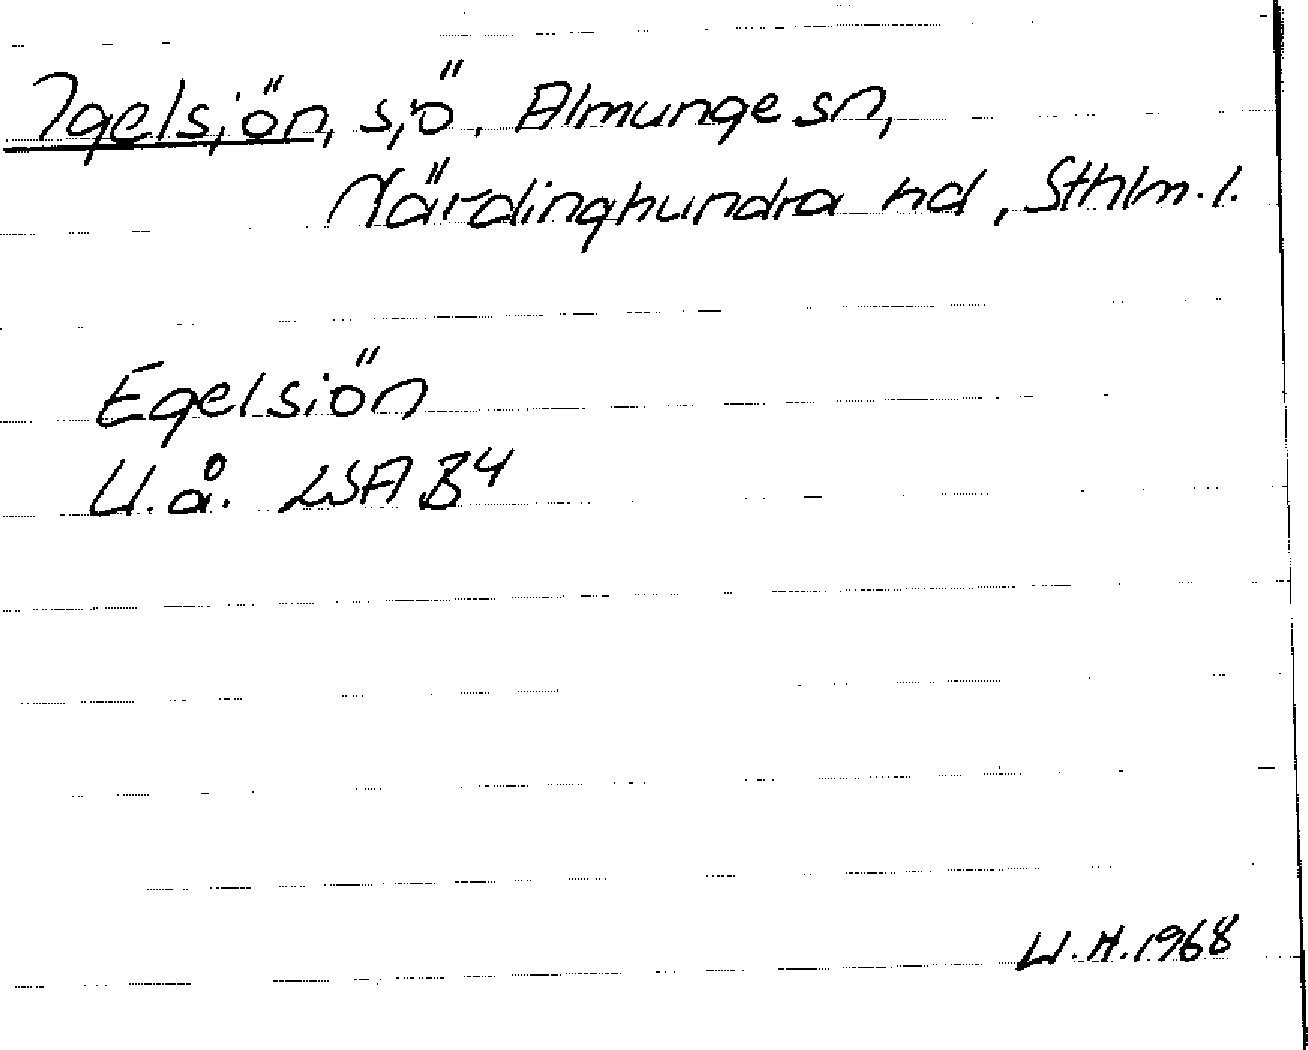 Igelsjön, sjö, Almunge sn,
Närdinghundra hd, Sthlm.l.
Egelsiön
U.å. LSA B4
U.H. 1968